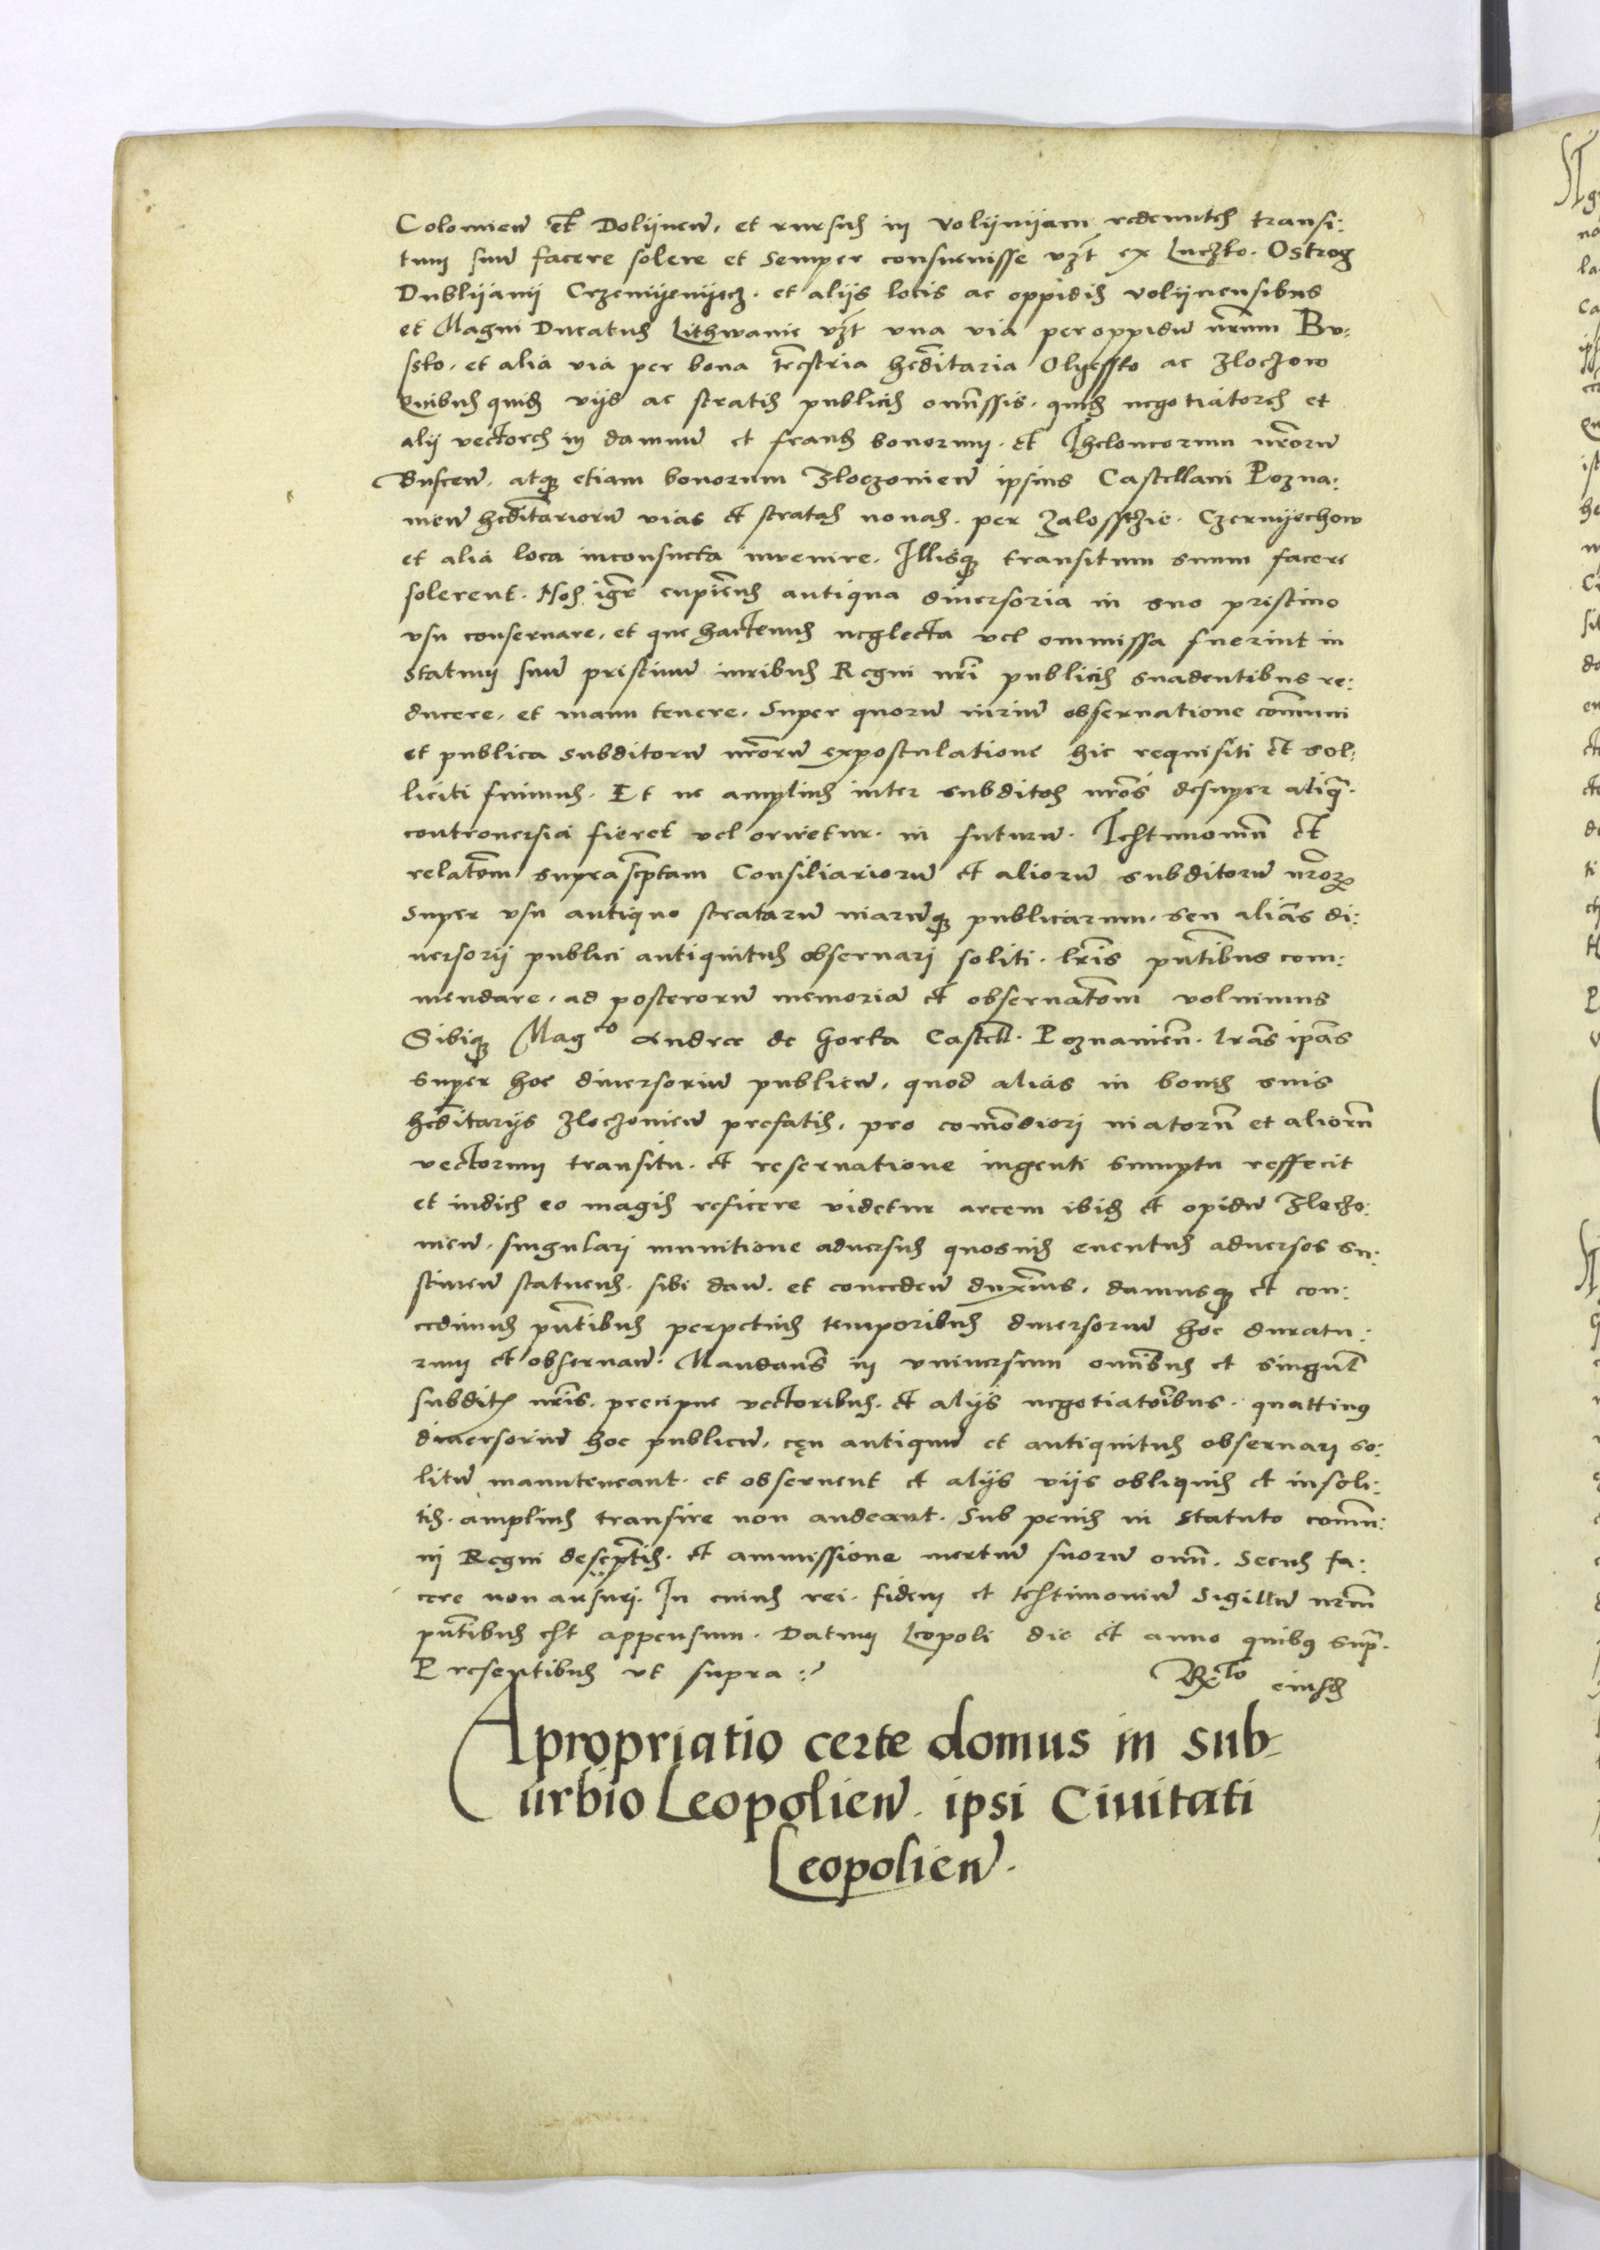 Colomien̄ et Dolijnen̄, et rursus in Volijnijam redeuntes transi:
tum suū facere solere et semper consueuisse vz̄t ex Luczko. Ostrog
Dublijanij Crzemijenijecz. et alijs locis ac oppidis volijniensibus
et Magni Ducatus Lithwanie vz̄t vna via per oppidū nr̄um Bu:
sko. et alia via per bona tr̄estria hēditaria Olijessko ac Zloczow
Quibus quid̄ vijs ac stratis publicis omīssis. quid̄ negotiatores et
alij vectores in damnū et fraud̄ bonorum. et Theloneorum nr̄orū
Buscen̄. atq3 etiam bonorum Zloczouien̄ ipsius Castellani Pozna:
nien̄ hēditariorū vias et stratas nouas. per Zalossczie. Czernijechow
et alia loca inconsueta inuenire. Illisq3 transitum suum facere
solerent. Nos igr̄ cupien̄ antiqua diuersoria in suo pristino
vsu conseruare, et que hactenus neglecta vel ommissa fuerint in
statum suū pristinū iuribus Regni nr̄i publicis suadentibus re:
ducere, et manu tenere. Super quorū iuriū obseruatione com̄uni
et publica subditorū nr̄orū expostulatione hic requisiti et sol:
liciti fuimus. Et ne amplius inter subditos nr̄os desuper aliq̄.
controuersia fieret vel oriretur. in futurū. Testimoniū et
relatōem suprascr̄ptam Consiliariorū et aliorū subditorū nr̄or
super vsu antiquo stratarū viarūq3 publicarum. seu alias di:
uersorij publici antiquitus obseruari soliti. lr̄is pn̄tibus com:
mendare, ad posterorū memoriā et obseruatōem voluimus
Sibiq3 Mag̅co Andree de Gorka Castell. Poznanien̄. lr̄as ipās
super hoc diuersoriū publicū, quod alias in bonis suis
hēditarijs Zloczouien̄ prefatis, pro com̄odiori viatorū et aliorū
vectorum transitu. et reseruatione ingenti sumptu reffecit
et indies eo magis reficere videtur arcem ibid̄ et opidū Zloczo:
uien̄. singulari munitione aduersus quosuis euentus aduersos su:
stinen̄ statuend̄. sibi dan̄. et conceden̄ dux̄imus, damusq3 et con:
cedimus pn̄tibus perpetuis temporibus diuersoriū hoc duratu:
rum et obseruan̄. Mandan̄s in vniuersum omībus et singul̄
subditis nr̄is. precipue vectoribus. et alijs negotiatoribus. quattinus
diuersoriū hoc publicū, ceu antiquū et antiquitus obseruari so:
litū manuteneant. et obseruent et alijs vijs obliquis et insoli:
tis. amplius transire non audeant. Sub penis in Statuto com̄u:
ni Regni descr̄ptis. et ammissione mertiū suorū om̄. Secus fa:
cere non ausuri. In cuius rei. fidem et testimoniū Sigillū nr̄um
pn̄tibus est appensum. Datum Leopoli die et anno quibus supr̄.
Presentibus vt supra
Rx̄to eiusd̄
Apropriatio certe domus in sub-
urbio Leopolien̄. ipsi Ciuitati
Leopolien̄.